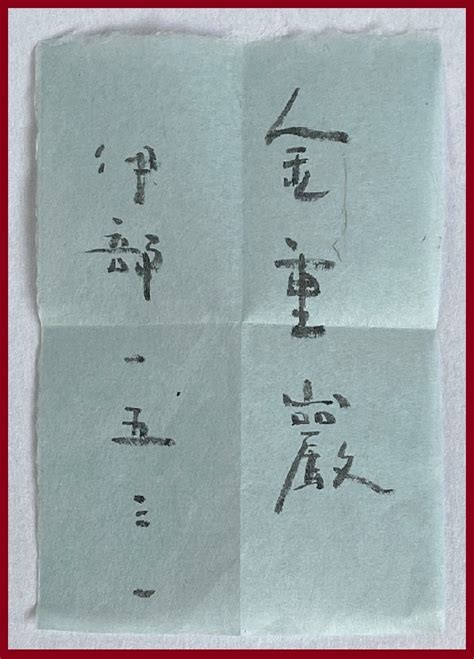 金重巖
伊部一五三一